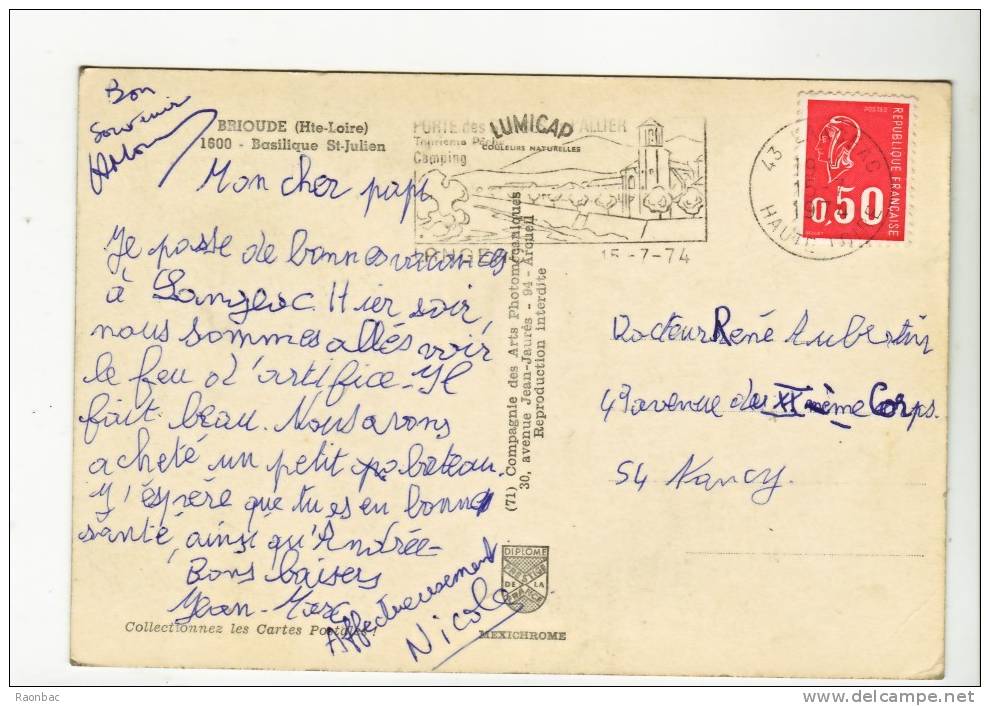 Bon
Souvenir
BRIOUDE (Hte-Loire)
1600 - Basilique St-Julien
Mon cher papi
Je passe de bonnes vacances
à Langeac. Hier soir,
nous sommes allés voir
le feu d'artifice. Il
fait beau. Nous avons
acheté un petit bateau.
J'éspère que tu es en bonne
santé, ainsi qu'Andrée.
Bons baisers
Jean-Marc
Affectueusement
Nicole
Collectionnez les Cartes Postales !
PORTE des ALLIER
Tourisme Pêche
Camping
LUMICAP
COULEURS NATURELLES
15-7-74
(71) Compagnie des Arts Photomécaniques
30, avenue Jean-Jaurès - 94 - Arcueil
Reproduction interdite
DIPLOME
PRESTIGE
DE LA
FRANCE
MEXICHROME
43
HAUTE LOIRE
POSTES
REPUBLIQUE FRANÇAISE
0,50
Docteur René Aubertin
49 avenue du XXème Corps.
54 Nancy.
Raonbac
delcampe.net